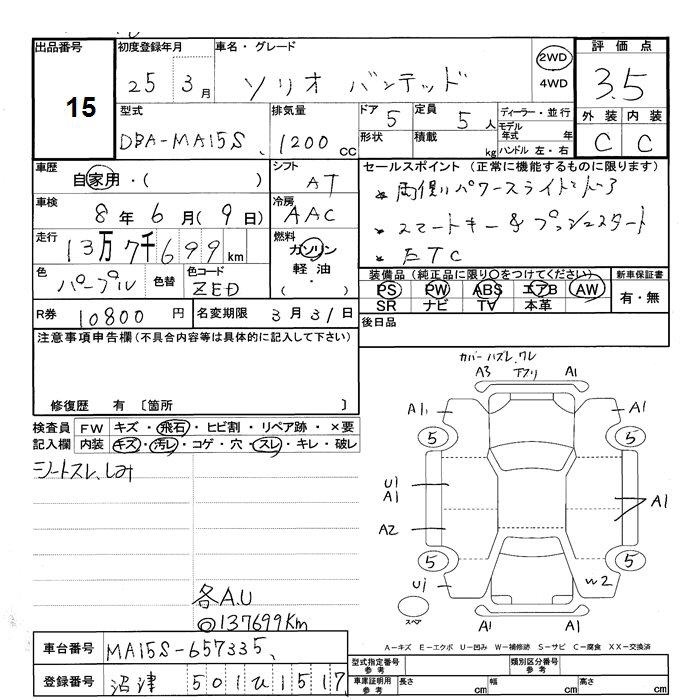 出品番号 初度登録年月 車名・グレード 評価点
15 25 3月 ソリオ バンデッド 2WD 4WD 3.5
型式 排気量 ドア 5 定員 5人 ディーラー・並行 外装 内装
DBA-MA15S 1200cc 形状 積載 kg モデル年式 年 ハンドル 左・右 C C
車歴 シフト セールスポイント (正常に機能するものに限ります)
自家用・( ) AT * 両側パワースライドドア
車検 冷房 * スマートキー & プッシュスタート
8年 6月(9日) AAC * ETC
走行 燃料
13万7千699km ガソリン 軽油 ( ・ )
色 色替 色コード 装備品 (純正品に限り○をつけてください) 新車保証書
パープル ZED PS PW ABS エアB AW 有・無
SR ナビ TV 本革
R券 10800円 名変期限 3月31日 後日品
注意事項申告欄 (不具合内容等は具体的に記入して下さい)
修復歴 有 〔箇所 〕
カバーハズレ、ワレ
A3 下スリ A1
A1 A1
5 5
U1
A1 A1
A2
5 5
U1 W2
スペア A1 A1
検査員 FW キズ・飛石・ヒビ割・リペア跡・×要
記入欄 内装 キズ・汚レ・コゲ・穴・スレ・キレ・破レ
シートスレ、しみ
各A.U
◎137699Km
A-キズ E-エクボ U-凹み W-補修跡 S-サビ C-腐食 XX-交換済
車台番号 MA15S-657335
登録番号 沼津 501ひ1517
型式指定番号 参考 類別区分番号 参考
車庫証明用 参考 長さ cm 幅 cm 高さ cm